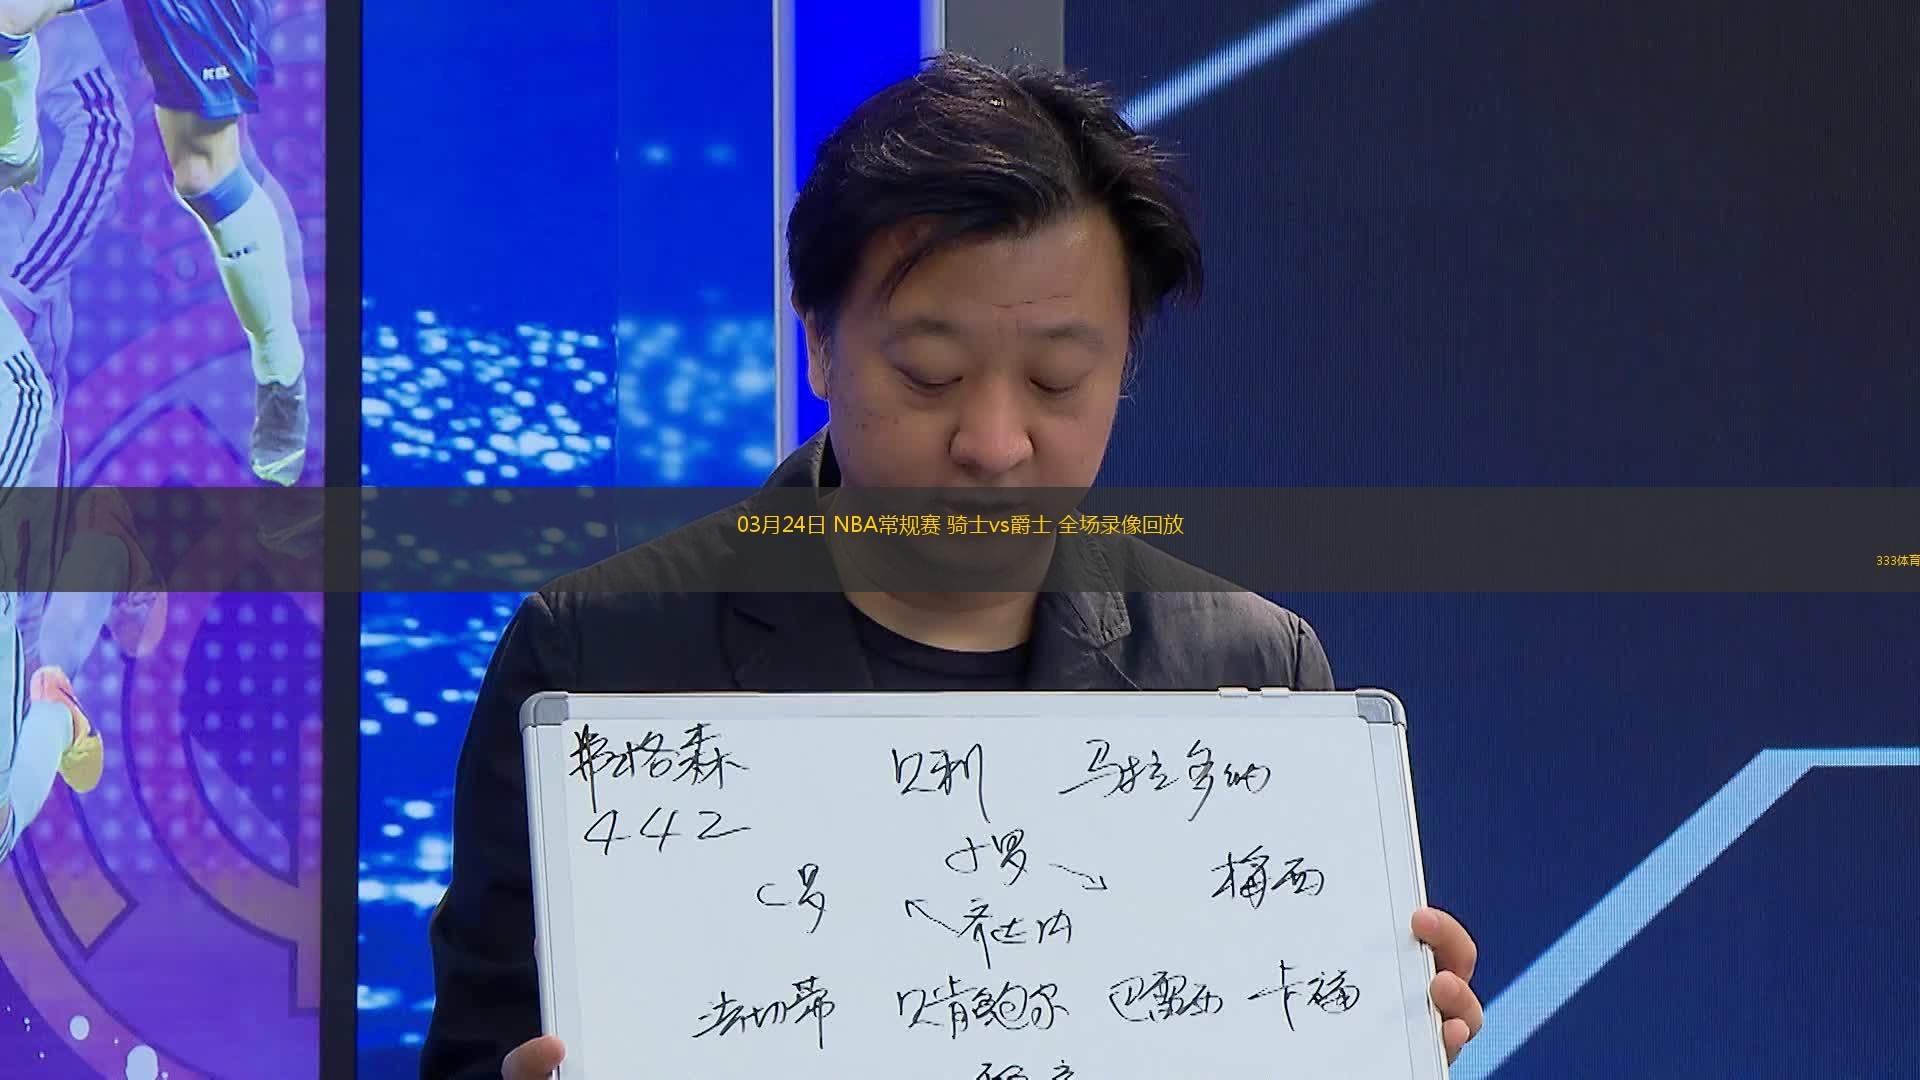 03月24日 NBA常规赛 骑士vs爵士 全场录像回放
333体育
弗格森 贝利 马拉多纳
442
小罗
C罗 梅西
齐达内
法切蒂 贝肯鲍尔 巴雷西 卡福